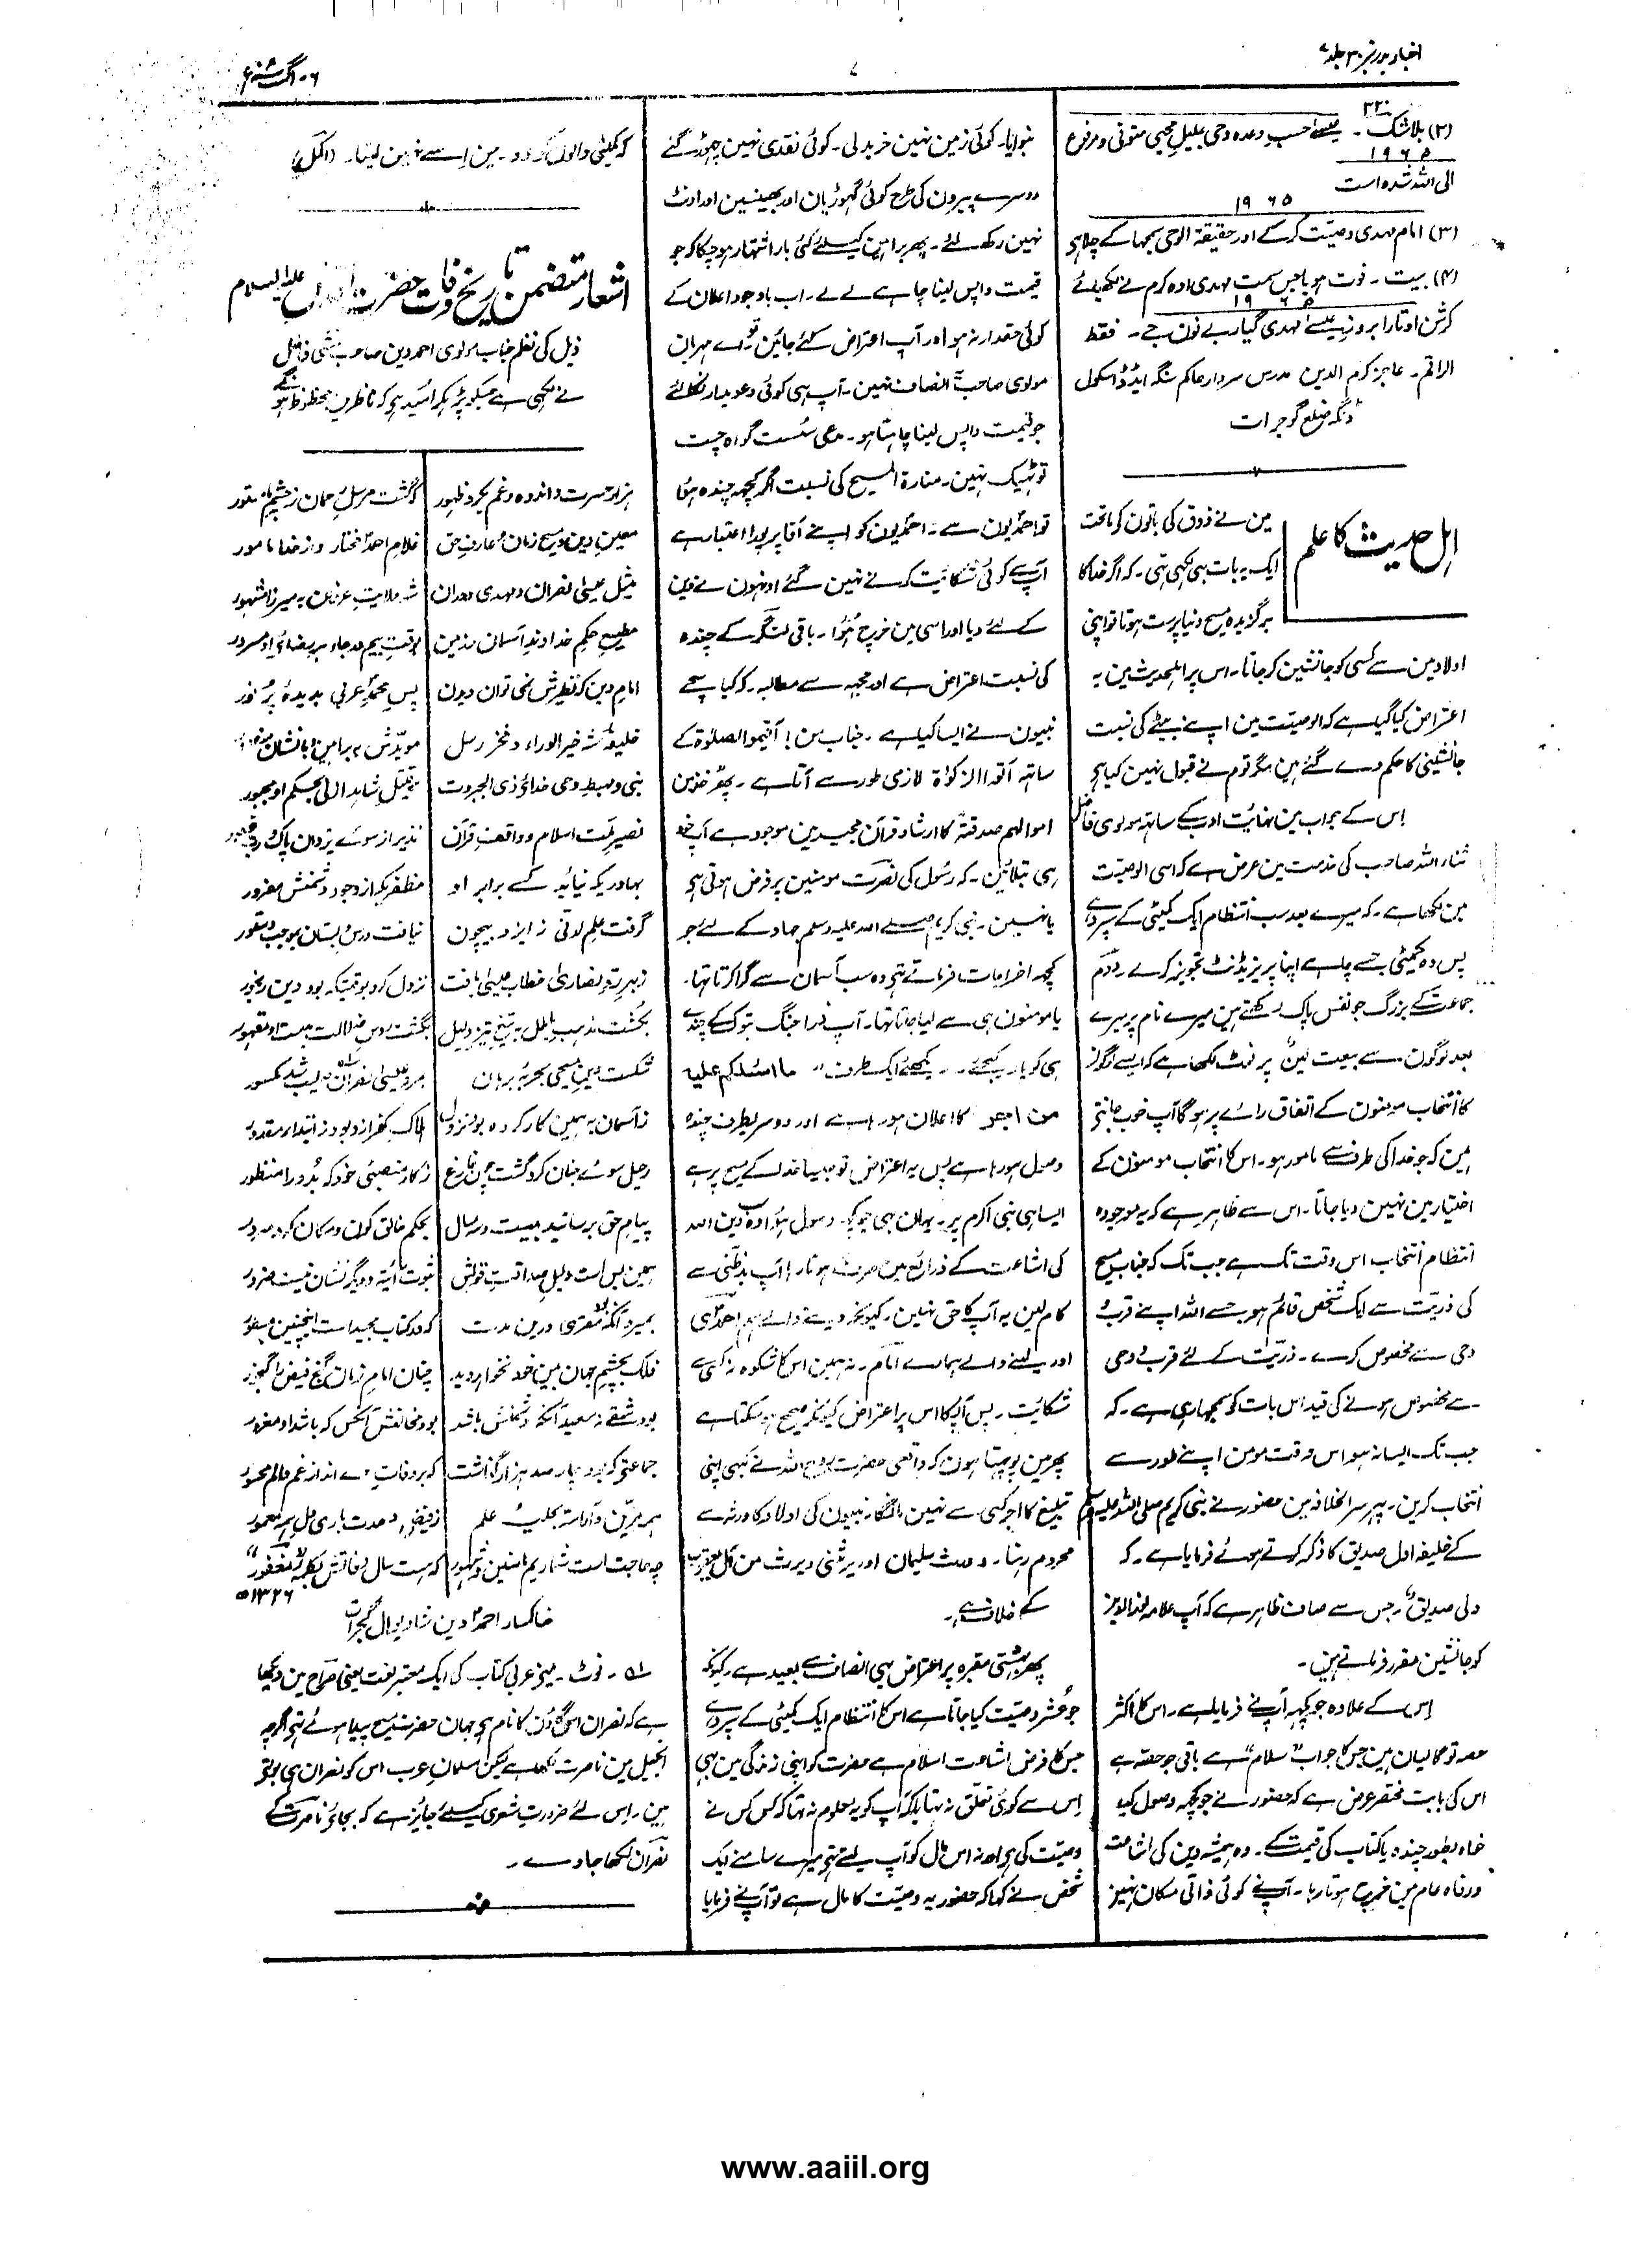 اخبار بدر نمبر ۳۰ جلد ۷
۷
۶ - اگست ۱۹۰۸ء
(۲) بلاشک - عیسے حسب وعدہ وحی جلیل مجیبی متوفی و مرفوع
۱۹۶۵
الی اللہ شدہ است
۱۹۶۵
(۳) امام مہدی وصیت کرکے اور حقیقۃ الوحی سمجھا کے چلا ہی
(۴) بیت - فوت ہویا جس سمت مہدی اوہ کرم نے لکھیدئے
۱۹۶۵
کرشن اوتارا بروزی عیسے مہدی گیارے نون جے - فقط
الراقم - عاجز کرم الدین مدرس سردار عاکم سنگہ ایڈڈ اسکول
ڈنگہ ضلع گوجرات
اہل حدیث کا علم
مین نے ذوق کی باتون کی ماتحت
ایک یہ بات ہی لکہی تہی - کہ اگر خدا کا
برگزیدہ مسیح دنیا پرست ہوتا تو اپنی
اولاد مین سے کسی کو جانشین کر جاتا - اس پر اہلحدیث مین یہ
اعتراض کیا گیا ہے کہ الوصیت مین اپنے بیٹے کی نسبت
جانشینی کا حکم دے گئے ہین مگر قوم نے قبول نہین کیا ہی
اس کے جواب مین نہائت ادب کے ساتہہ مولوی فاضل
ثناء اللہ صاحب کی خدمت مین عرض ہے کہ اسی الوصیت
مین لکھا ہے - کہ میرے بعد سب انتظام ایک کمیٹی کے سپرد ہے
پس وہ کمیٹی جسے چاہے اپنا پریزیڈنٹ تجویز کرے - دوم
جماعت کے بزرگ جو نفس پاک رکہتے ہین میرے نام پر میرے
بعد لوگون سے بیعت لین" پر نوٹ لکھا ہے کہ ایسے لوگون
کا انتخاب مومنون کے اتفاق رائے پر ہوگا آپ خوب جانتے
ہین کہ جو خدا کی طرف سے مامور ہو - اس کا انتخاب مومنون کے
اختیار مین نہین دیا جاتا - اس سے ظاہر ہے کہ یہ موجودہ
انتظام انتخاب اس وقت تک ہے جب تک کہ جناب مسیح
کی ذریت سے ایک شخص قائم ہو جسے اللہ اپنے قرب و
وحی سے مخصوص کرے - ذریت کے لئے قرب و وحی
سے مخصوص ہونے کی قید اس بات کو سمجہا رہی ہے - کہ
جب تک ایسا نہ ہو اس وقت مومن اپنے طور سے
انتخاب کرین - پہر سر الخلافہ مین حضور نے نبی کریم صلی اللہ علیہ وسلم
کے خلیفہ اول صدیق کا ذکر کرتے ہوئے فرمایا ہے - کہ
ولی صدیق - جس سے صاف ظاہر ہے کہ آپ علامہ نور الدین
کو جانشین مقرر فرماتے ہین -
اس کے علاوہ جو کچہہ آپ نے فرمایا ہے - اس کا اکثر
حصہ تو گالیان ہین جس کا جواب "سلام" ہے باقی جو حصہ ہے
اس کی بابت مختصر عرض ہے کہ حضور نے جو کچہہ وصول کیا
خواہ بطور چندہ یا کتاب کی قیمت کے - وہ ہمیشہ دین کی اشاعت
و رفاہ عام مین خرچ ہوتا رہا - آپ نے کوئی ذاتی مکان نہین
بنوایا - کوئی زمین نہین خرید لی - کوئی نقدی نہین چہوڑ گئے
دوسرے پیرون کی طرح کوئی گہوڑیان اور بھینسین اور اونٹ
نہین رکھ لئے - پھر براہین کیلئے کئی بار اشتہار ہو چکا کہ جو
قیمت واپس لینا چاہے لے لے - اب باوجود اعلان کے
کوئی حقدار نہ ہو اور آپ اعتراض کئے جائین - تو اے مہربان
مولوی صاحب انصاف نہین - آپ ہی کوئی دعویدار نکالئے
جو قیمت واپس لینا چاہتا ہو - مدعی سست گواہ چست
تو ٹہیک نہین - منارۃ المسیح کی نسبت اگر کچہہ چندہ ہوا
تو احمدیون سے - احمدیون کو اپنے آقا پر پورا اعتبار ہے
آپ سے کوئی شکائیت کرنے نہین گئے اونہون نے دین
کے لئے دیا اور اسی مین خرچ ہوا - باقی لنگر کے چندہ
کی نسبت اعتراض ہے اور مجہہ سے مطالبہ - کہ کیا سچے
نبیون نے ایسا کیا ہے - جناب من! اقیمو الصلوٰۃ کے
ساتہہ آتوا الزکوٰۃ لازمی طور سے آتا ہے - پھر خذ من
اموالہم صدقۃ کا ارشاد قرآن مجید مین موجود ہے آپ خود
ہی بتلائین - کہ رسول کی نصرت مومنین پر فرض ہوتی ہی
یا نہین - نبی کریم صلے اللہ علیہ وسلم جہاد کے لئے جو
کچہہ اخراجات فرماتے تہے وہ سب آسمان سے گرا کرتا تہا -
یا مومنون ہی سے لیا جاتا تہا - آپ ذرا جنگ تبوک کے چندے
ہی کو یاد کیجئے - دیکھئے ایک طرف " ما اسئلکم علیہ
من اجر کا اعلان ہو رہا ہے اور دوسریطرف چندہ
وصول ہو رہا ہے پس یہ اعتراض تو جیسا خدا کے مسیح پر ہے
ایسا ہی نبی اکرم پر - یہان بہی جو کچہ وصول ہوا وہ سب دین اللہ
کی اشاعت کے ذرائع مین صرف ہوتا رہا آپ بدظنی سے
کام لین یہ آپ کا حق نہین - کیونکہ دینے والے ہم احمدی
اور لینے والے ہمارے امام - نہ ہمین اس کا شکوہ نہ کسی سے
شکائیت - پس آپکا اس پر اعتراض کیونکر صحیح ہو سکتا ہے
پہر مین پوچہتا ہون کہ واقعی حضرت روح اللہ نے کبہی اپنی
تبلیغ کا اجر کسی سے نہین مانگا - نبیون کی اولاد کا ورثہ سے
محروم رہنا - ورث سلیمان اور یرثنی ویرث من آل یعقوب
کے خلاف ہے -
پھر بہشتی مقبرہ پر اعتراض بہی انصاف سے بعید ہے - کیونکہ
جو عشر وصیت کیا جاتا ہے اس کا انتظام ایک کمیٹی کے سپرد ہے
جس کا فرض اشاعت اسلام ہے حضرت کو اپنی زندگی مین بہی
اس سے کوئی تعلق نہ تہا بلکہ آپ کو یہ معلوم نہ تہا کہ کس کس نے
وصیت کی ہی اور نہ اس مال کو آپ لیتے تہے میرے سامنے ایک
شخص نے کہا کہ حضور یہ وصیت کا مال ہے تو آپ نے فرمایا
کہ کمیٹی والون کو دو - مین اسے نہین لیتا - (اکمل)
اشعار متضمن تاریخ وفات حضرت اقدس علیہ السلام
ذیل کی نظم جناب مولوی احمد دین صاحب منشی فاضل
نے لکہی ہے جسکو پڑہکر امید ہی کہ ناظرین محظوظ ہونگے
ہزار حسرت و اندوہ و غم بکرد ظہور
کہ گشت مرسل رحمان ز چشم ما مستور
معین دین و مسیح زمان و عارف حق
غلام احمد مختار و از خدا مامور
مثیل عیسیٰ نصران و مہدی دوران
شہ ولایت عرفان بہ میرزا مشہور
مطیع حکم خداوند آسمان و زمین
امام دین کہ نظیرش نمی توان دیدن
پس محمد عربی بدیدہ پر نور
خلیفۂ شہ خیر الوراء و فخر رسل
نبی و مہبط وحی خدائ ذی الجبروت
نصیر ملت اسلام و واقف قرآن
نذیر از سوئے یزدان پاک
بہادر یکہ نیائد کسے برابر او
مظفر یکہ از وجود دشمنش مغرور
گرفت علم لدنی ز ایزد بیچون
نیافت درس دبستان بموجب دستور
ز بہر قوم نصاریٰ خطاب عیسیٰ یافت
نزول کرد بوقتیکہ بود دین رنجور
بکشت مذہب باطل بہ تیغ تیز دلیل
شکست دین مسیحی بحربۂ برہان
بمرد عیسیٰ نصران صلیب شد مکسور
رحیل سوئے جنان کرد گشت چون فارغ
ز کار منصبئی خود کہ بد ورا منظور
پیام حق برسانید بیست و سہ سال
بحکم خالق کون و مکان
ہمین بس است دلیل صداقت قولش
ثبوت آئیہ و دیگر نشان نیست ضرور
بمیرد آنکہ بود مفتری درین مدت
کہ در کتاب مجید است اینچنین مسطور
فلک بچشم جہان بین خود نخواہد دید
چنان امام زمان گنج فیض را گنجور
بود شقی نہ سعید آنکہ دشمنش باشد
بود مخالفش آنکس کہ باشد او مغرور
جماعتی کہ بود چار صد ہزار گذاشت
کہ بر وفات وے اند از غم و الم محسور
ہمہ مزین و آراستہ بحلیۂ علم
ز فیض وحدت باری دل ہمہ معمور
چہ حاجت است شماریم ما سنین و شہور
کہ ہست سال وفاتش بکلمۂ "مغفور"
۱۳۲۶ھ
خاکسار احمد دین شادیوال گجرات
۵۱ - نوٹ - مینے عربی کتاب کی ایک معتبر لغت یعنی صراح مین دیکھا
ہے کہ نصران اس گاؤن کا نام ہی جہان حضرت مسیح پیدا ہوئے تہے اگرچہ
انجیل مین ناصرت لکھا ہے لیکن مسلمان عرب اس کو نصران ہی بولتے
ہین - اس لئے ضرورت شعری کیلئے جائز ہے کہ بجائے ناصرت کے
نصران لکھا جاوے -
www.aaiil.org